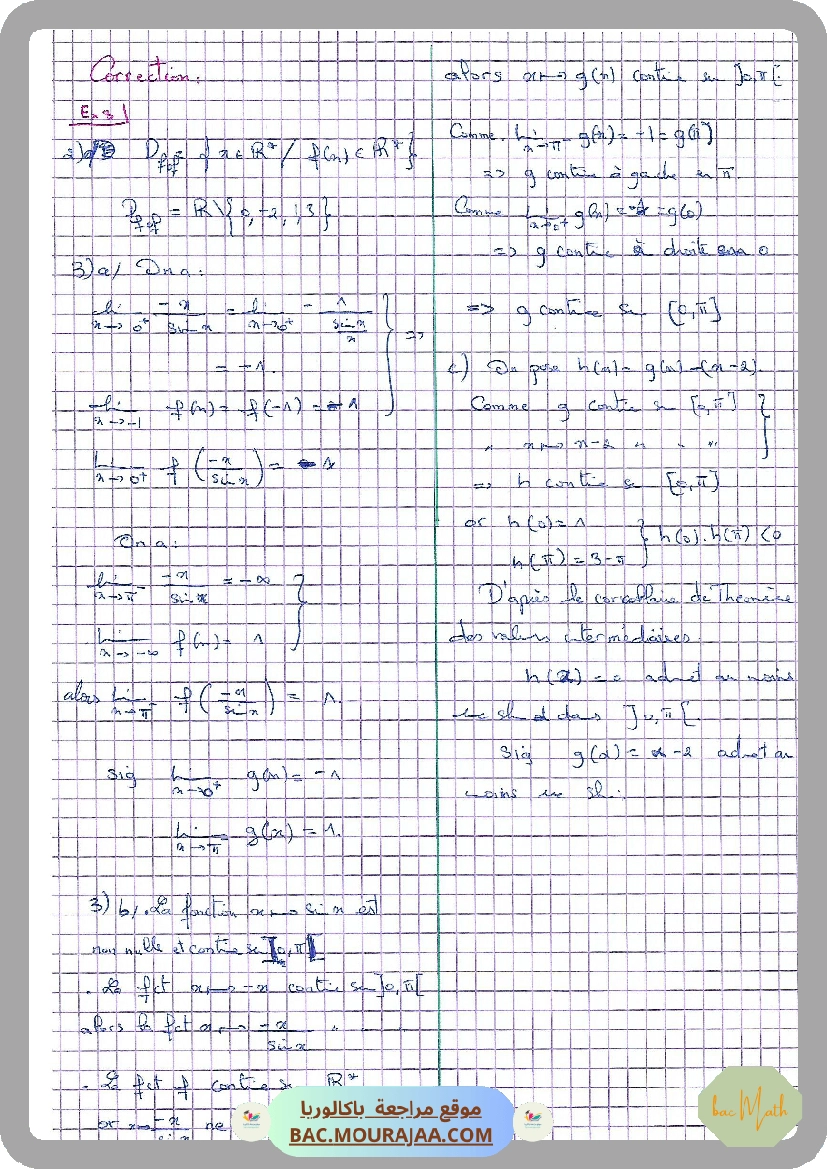 Correction:
Exs 1
2) D_fof = { x ∈ ℝ* / f(x) ∈ ℝ* }
D_fof = ℝ \ { 0, -2, 1, 3 }
3) a/ On a:
lim x→0⁺ -x/sin x = lim x→0⁺ - 1/(sin x/x)
= -1. =>
lim x→-1 f(x) = f(-1) = -1
lim x→0⁺ f(-x/sin x) = 1
On a:
lim x→π⁻ -x/sin x = -∞
lim x→-∞ f(x) = 1
alors lim x→π⁻ f(-x/sin x) = 1.
sig lim x→0⁺ g(x) = -1
lim x→π g(x) = 1.
3) b/. La fonction x↦ sin x est
non nulle et continue sur ]0,π[
. La fct x↦ -x continue sur ]0,π[
alors la fct x↦ -x/sin x "
. La fct f continue sur ℝ*
or x↦ -x/sin x ne
alors x↦ g(x) continue sur ]0,π[
Comme lim x→π⁻ g(x) = -1 = g(π)
=> g continue à gauche en π
Comme lim x→0⁺ g(x) = = g(0)
=> g continue à droite en 0
=> g continue sur [0,π]
c) On pose h(x) = g(x) - (x-2).
Comme g continue sur [0,π]
" x↦ x-2 " " "
=> h continue sur [0,π]
or h(0) = 1
h(π) = 3-π } h(0).h(π) <0
D'après le corollaire de Théorème
des valeurs intermédiaires.
h(x) = 0 admet au moins
une sol α dans ]0,π[.
Sig g(α) = α-2 admet au
moins une sol.
موقع مراجعة باكالوريا
BAC.MOURAJAA.COM
bac Math